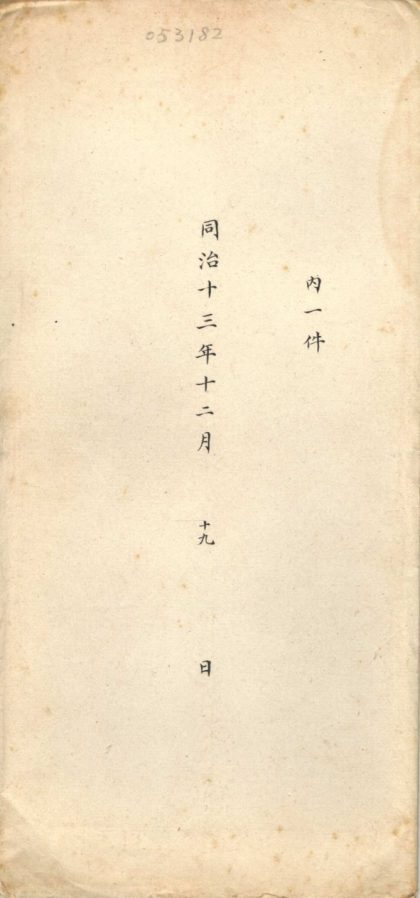 053182
內一件
同治十三年十二月 十九 日